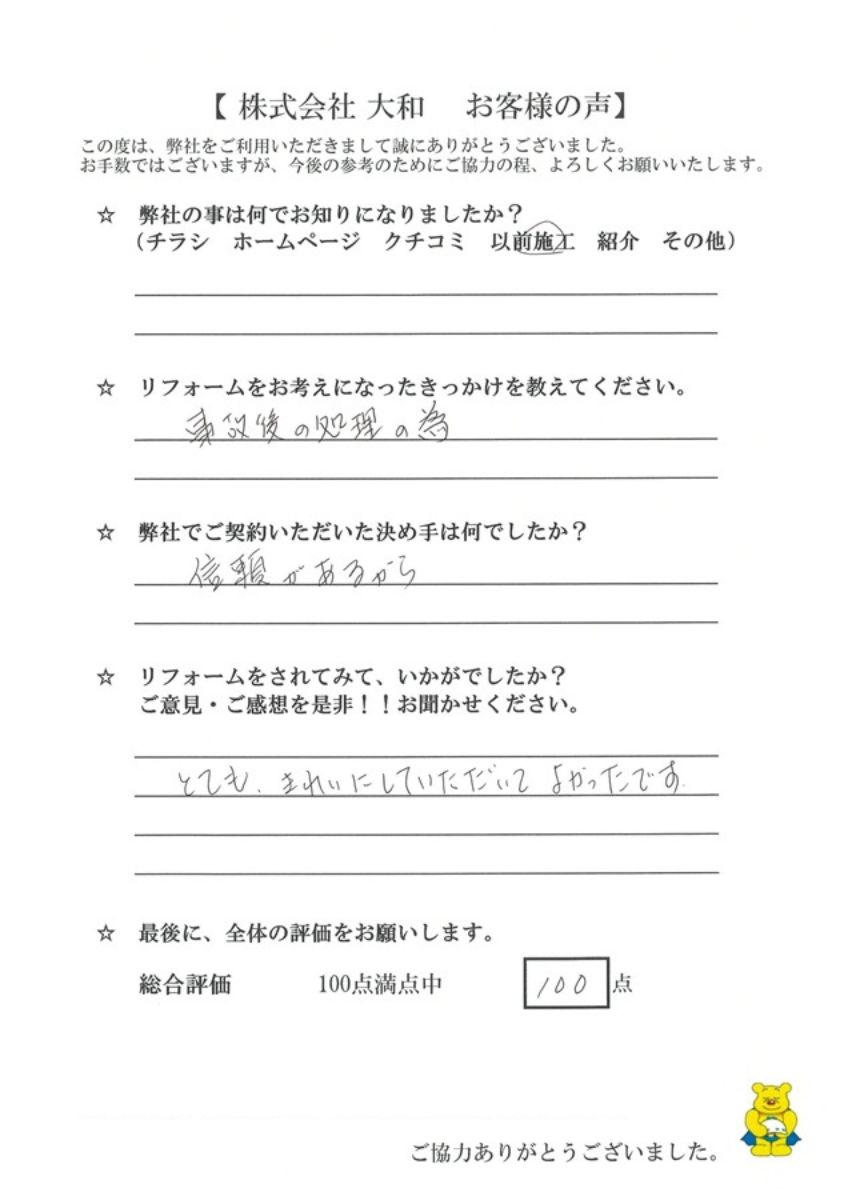 【 株式会社 大和 お客様の声】
この度は、弊社をご利用いただきまして誠にありがとうございました。
お手数ではございますが、今後の参考のためにご協力の程、よろしくお願いいたします。
☆ 弊社の事は何でお知りになりましたか？
（チラシ ホームページ クチコミ 以前施工 紹介 その他）
☆ リフォームをお考えになったきっかけを教えてください。
事故後の処理の為
☆ 弊社でご契約いただいた決め手は何でしたか？
信頼があるから
☆ リフォームをされてみて、いかがでしたか？
ご意見・ご感想を是非！！お聞かせください。
とても、きれいにしていただいて よかったです。
☆ 最後に、全体の評価をお願いします。
総合評価 100点満点中 100 点
ご協力ありがとうございました。